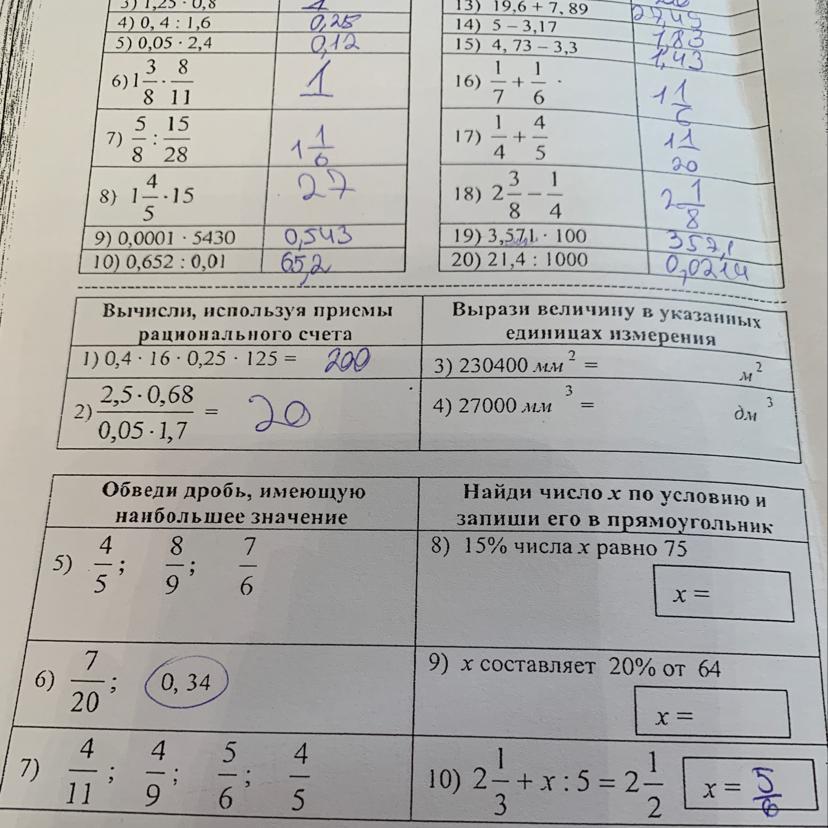 3) 1,25 · 0,8 1
4) 0, 4 : 1,6 0,25
5) 0,05 · 2,4 0,12
6) 1 3/8 · 8/11 1
7) 5/8 : 15/28 1 1/6
8) 1 4/5 · 15 27
9) 0,0001 · 5430 0,543
10) 0,652 : 0,01 65,2
13) 19,6 + 7, 89 27,49
14) 5 – 3,17 1,83
15) 4, 73 – 3,3 1,43
16) 1/7 + 1/6 ·
17) 1/4 + 4/5 1 1/20
18) 2 3/8 – 1/4 2 1/8
19) 3,571 · 100 357,1
20) 21,4 : 1000 0,0214
Вычисли, используя приемы
рационального счета
1) 0,4 · 16 · 0,25 · 125 = 200
2) 2,5 · 0,68 / 0,05 · 1,7 = 20
Вырази величину в указанных
единицах измерения
3) 230400 мм² = м²
4) 27000 мм³ = дм³
Обведи дробь, имеющую
наибольшее значение
5) 4/5 ; 8/9 ; 7/6
6) 7/20 ; 0, 34
7) 4/11 ; 4/9 ; 5/6 ; 4/5
Найди число х по условию и
запиши его в прямоугольник
8) 15% числа х равно 75
х =
9) х составляет 20% от 64
х =
10) 2 1/3 + х : 5 = 2 1/2 х = 5/6